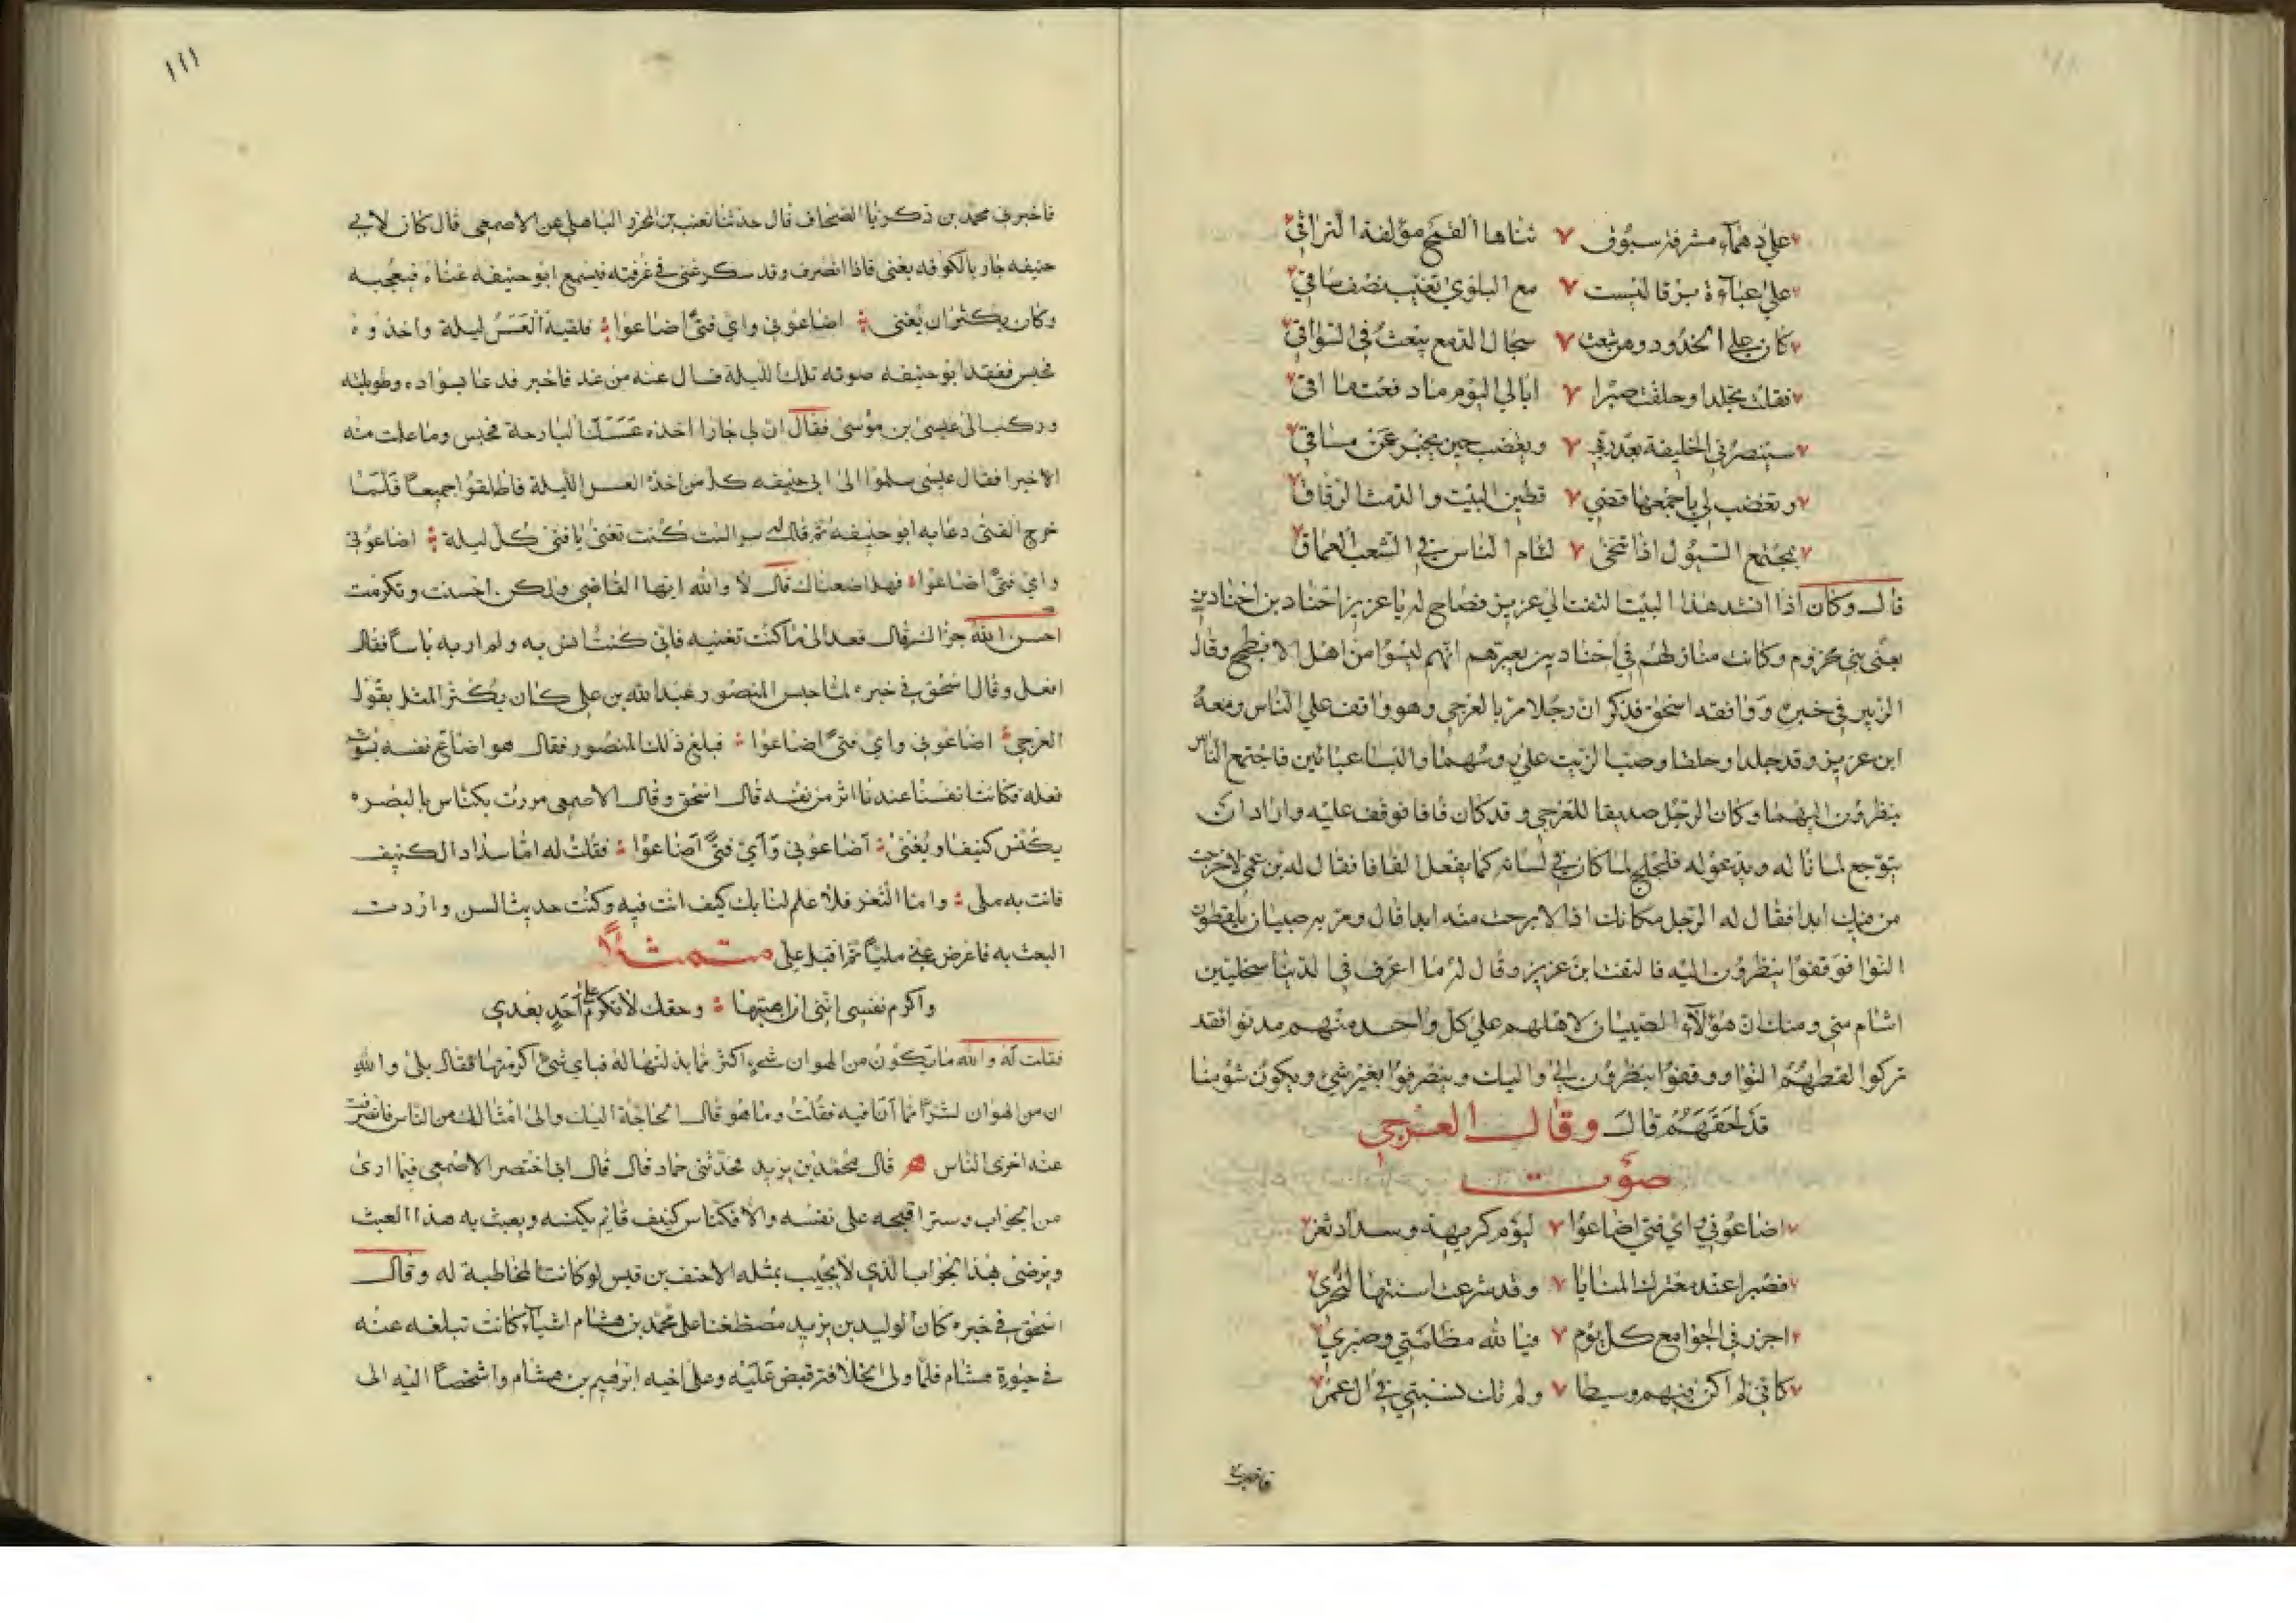 على دهماء مشرفة سبوق ثناها القمح مؤلفة التراقي
على عباءة برقا ليست مع البلوى تغيب نصف ساقي
كان على الخدود وهن شعث سجال الدمع يبعث في السواقي
فقلت تجلدا وحلفت صبرا ابالي اليوم ما دفعت ماقي
سينصرني الخليفة بعد ربي ويغضب حين يخبر عن مساقي
وتغضب لي باجمعها قصي قطين البيت والدمث الرقاق
بمجتمع السيول اذا تنحى لئام الناس في الشعب العماق
قال وكان اذا انشد هذا البيت التفت الى عزيز فصاح له يا عزيز اخناد بن اخنادين
يعني بني مخزوم وكانت منازلهم في اخنادين يعيرهم انهم ليسوا من اهل الابطح وقال
الزبير في خبره ووافقه اسحق فذكر ان رجلا مر بالعرجي وهو واقف على الناس ومعه
ابن عزيز وقد جلدا وحلقا وصب الزيت على روسهما والبسا عباتين فاجتمع الناس
ينظرون اليهما وكان الرجل صديقا للعرجي وقد كان فافا فوقف عليه واراد ان
يتوجع لما ناله ويدعو له فلجلج لما كان في لسانه كما يفعل الفافا فقال له بن عمي لاخرجت
من فيك ابدا فقال له الرجل مكانك اذا لا برحت منه ابدا قال ومر به صبيان يلقطون
النوا فوقفوا ينظرون اليه فالتفت ابن عزيز وقال له ما اعرف في الدنيا سخلتين
اشام مني ومنك ان هؤلاء الصبيان لاهلهم على كل واحد منهم مد نوا فقد
تركوا لقطهم النوا ووقفوا ينظرون الي واليك وينصرفوا بغير شي ويكون شؤمنا
قد لحقهم قال وقال العرجي
صوت
اضاعوني واي فتى اضاعوا ليوم كريهة وسداد ثغر
فصبرا عند معترك المنايا وقد شرعت اسنتها لنحري
اجرر في الجوامع كل يوم فيا لله مظلمتي وصبري
كاني لم اكن فيهم وسيطا ولم تك نسبتي في ال عمر
فاخبرني
١١١
فاخبرني محمد بن زكريا الصحاف قال حدثنا قعنب بن المحرز الباهلي عن الاصمعي قال كان لابي
حنيفه جار بالكوفه يغني فاذا انصرف وقد سكر غنى في غرفته فيسمع ابو حنيفه غناءه فيعجبه
وكان يكثر ان يغني اضاعوني واي فتى اضاعوا فلقيه العسس ليلة واخذوه
فحبس ففقد ابو حنيفه صوته تلك الليلة فسال عنه من غد فاخبر فدعا بسواده وطويلته
وركب الى عيسى بن موسى فقال ان لي جارا اخذه عسسك البارحة فحبس وما علمت منه
الا خيرا فقال عيسى سلموا الى ابي حنيفه كل من اخذه العسس الليلة فاطلقوا جميعا فلما
خرج الفتى دعا به ابو حنيفه ثم قال له سرا الست كنت تغني يا فتى كل ليلة اضاعوني
واي فتى اضاعوا فهل اضعناك قال لا والله ايها القاضي ولكن احسنت وتكرمت
احسن الله جزاك قال فعد الى ما كنت تغنيه فاني كنت انس به ولم ار به باسا فقال
افعل وقال اسحق في خبره لما حبس المنصور عبد الله بن علي كان يكثر التمثل بقول
العرجي اضاعوني واي فتى اضاعوا فبلغ ذلك المنصور فقال هو اضاع نفسه بسوء
فعله فكانت انفسنا عندنا اثر من نفسه قال اسحق وقال الاصمعي مررت بكناس بالبصره
يكنس كنيفا ويغني اضاعوني واي فتى اضاعوا فقلت له اما سداد الكنيف
فانت به ملي واما الثغر فلا علم لنا بك كيف انت فيه وكنت حديث السن واردت
البعث به فاعرض عني مليا ثم اقبل علي متمثلا
واكرم نفسي انني ان اهنتها وحقك لا تكرم على احد بعدي
فقلت له والله ما يكون من الهوان شيء اكثر مما بذلتها له فباي شي اكرمتها فقال بلى والله
ان من الهوان لشرا مما انا فيه فقلت وما هو قال الحاجة اليك والى امثالك من الناس فانصرفت
عنه اخزى الناس قال محمد بن يزيد فحدثني حماد قال قال ابي اختصر الاصمعي فيما ارى
من الجواب وستر اقبحه على نفسه والا فكناس كنيف قايم يكنسه ويعبث به هذا العبث
ويرضى بهذا الجواب الذي لا يجيب بمثله الاحنف بن قيس لو كانت المخاطبة له وقال
اسحق في خبره كان الوليد بن يزيد مضطغنا على محمد بن هشام اشياء كانت تبلغه عنه
في حيوة هشام فلما ولى الخلافة قبض عليه وعلى اخيه ابرهيم بن هشام واشخصا اليه الى